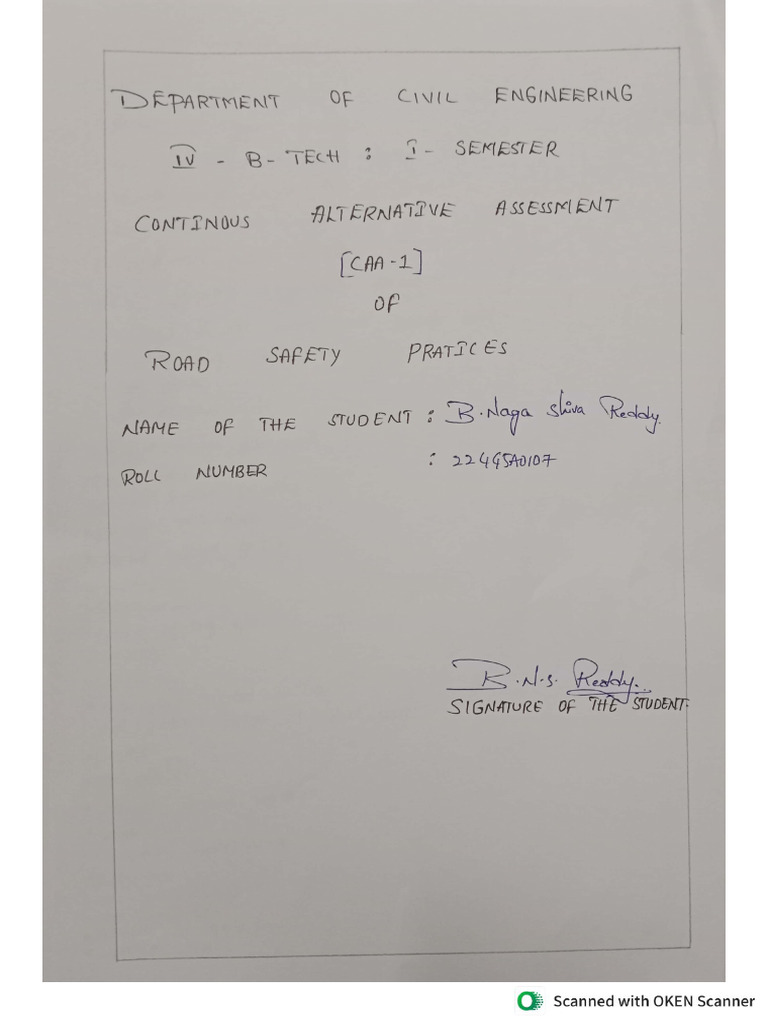 DEPARTMENT OF CIVIL ENGINEERING
IV - B-TECH : I - SEMESTER
CONTINOUS ALTERNATIVE ASSESSMENT
[CAA-1]
OF
ROAD SAFETY PRATICES
NAME OF THE STUDENT : B.Naga Shiva Reddy.
ROLL NUMBER : 224G5A0107
B.N.S. Reddy.
SIGNATURE OF THE STUDENT.
Scanned with OKEN Scanner